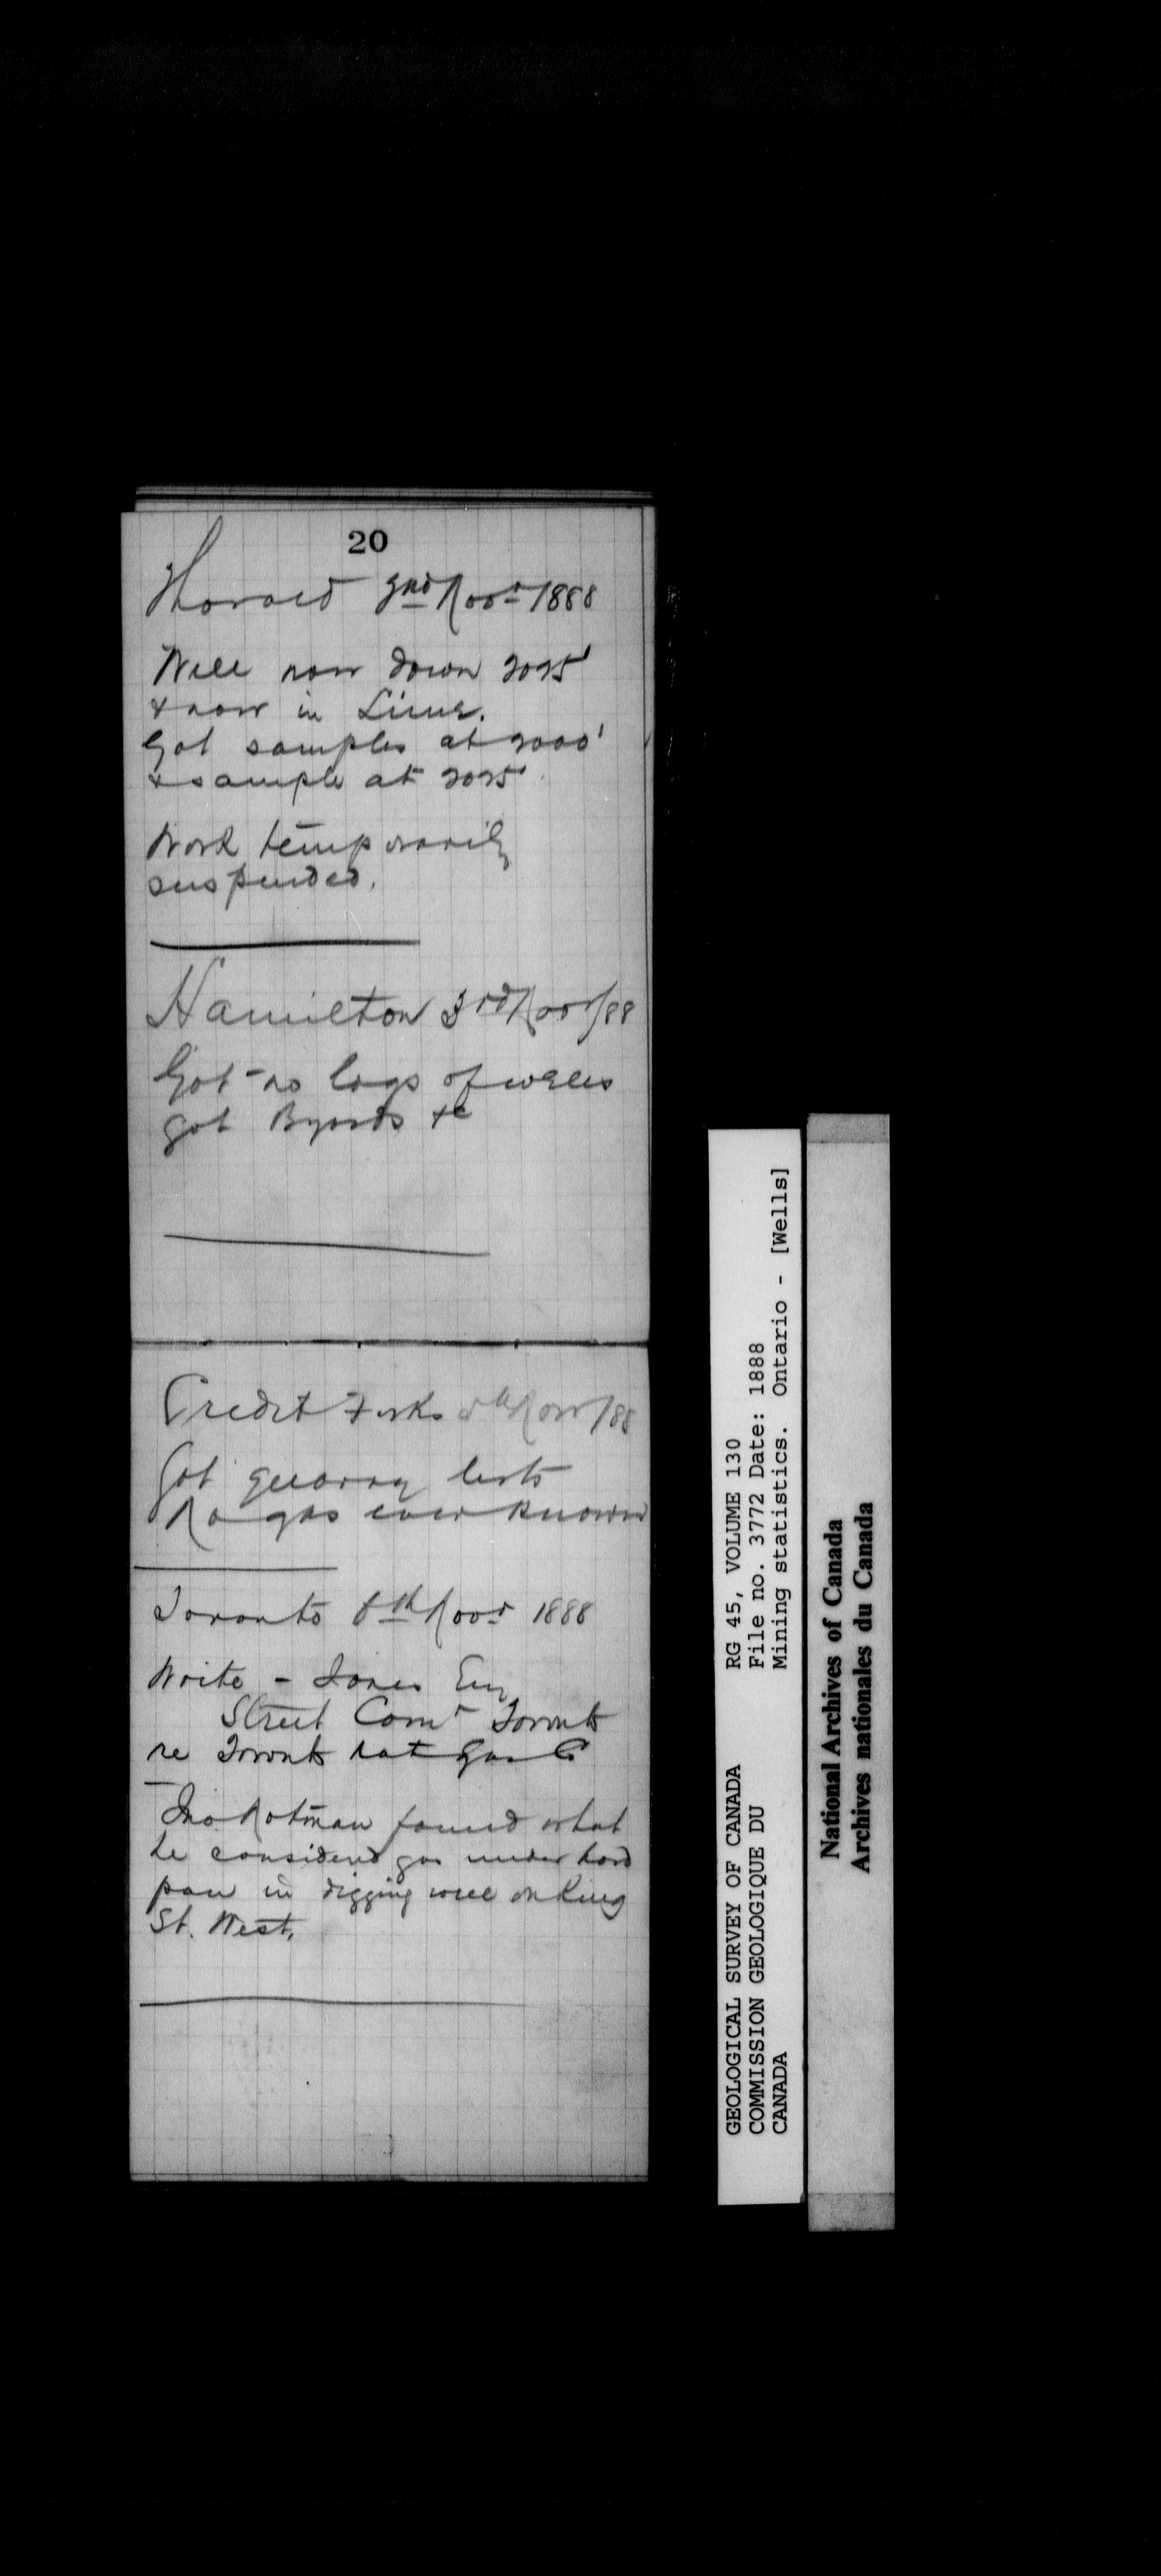 20
Thorold 2nd Novr 1888
Well now down 2025'
& now in Lime.
Got samples at 2000'
& sample at 2025'
Work temporarily
suspended.
Hamilton 3rd Novr/88
Got no logs of wells
got &c
Credit Forks 5th Novr/88
Got quarry lists
No gas ever known
Toronto 8th Novr 1888
Write - Jones Esq
Street Comr Toronto
re Toronto Nat Gas Co
Jno. Notman found what
he considered gas under hard
pan in digging well on King
St. West.
GEOLOGICAL SURVEY OF CANADA
COMMISSION GEOLOGIQUE DU
CANADA
RG 45, VOLUME 130
File no. 3772 Date: 1888
Mining statistics. Ontario - [Wells]
National Archives of Canada
Archives nationales du Canada